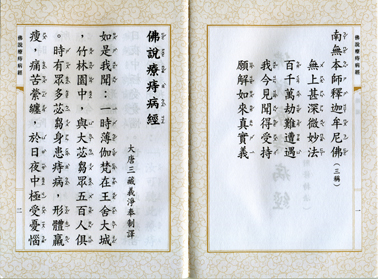 南無本師釋迦牟尼佛(三稱)
無上甚深微妙法
百千萬劫難遭遇
我今見聞得受持
願解如來真實義
佛說療痔病經
一
佛說療痔病經
大唐三藏義淨奉制譯
如是我聞:一時薄伽梵在王舍大城
,竹林園中,與大苾芻眾五百人俱
。時有眾多苾芻身患痔病,形體羸
瘦,痛苦縈纏,於日夜中極受憂惱
佛說療痔病經
二